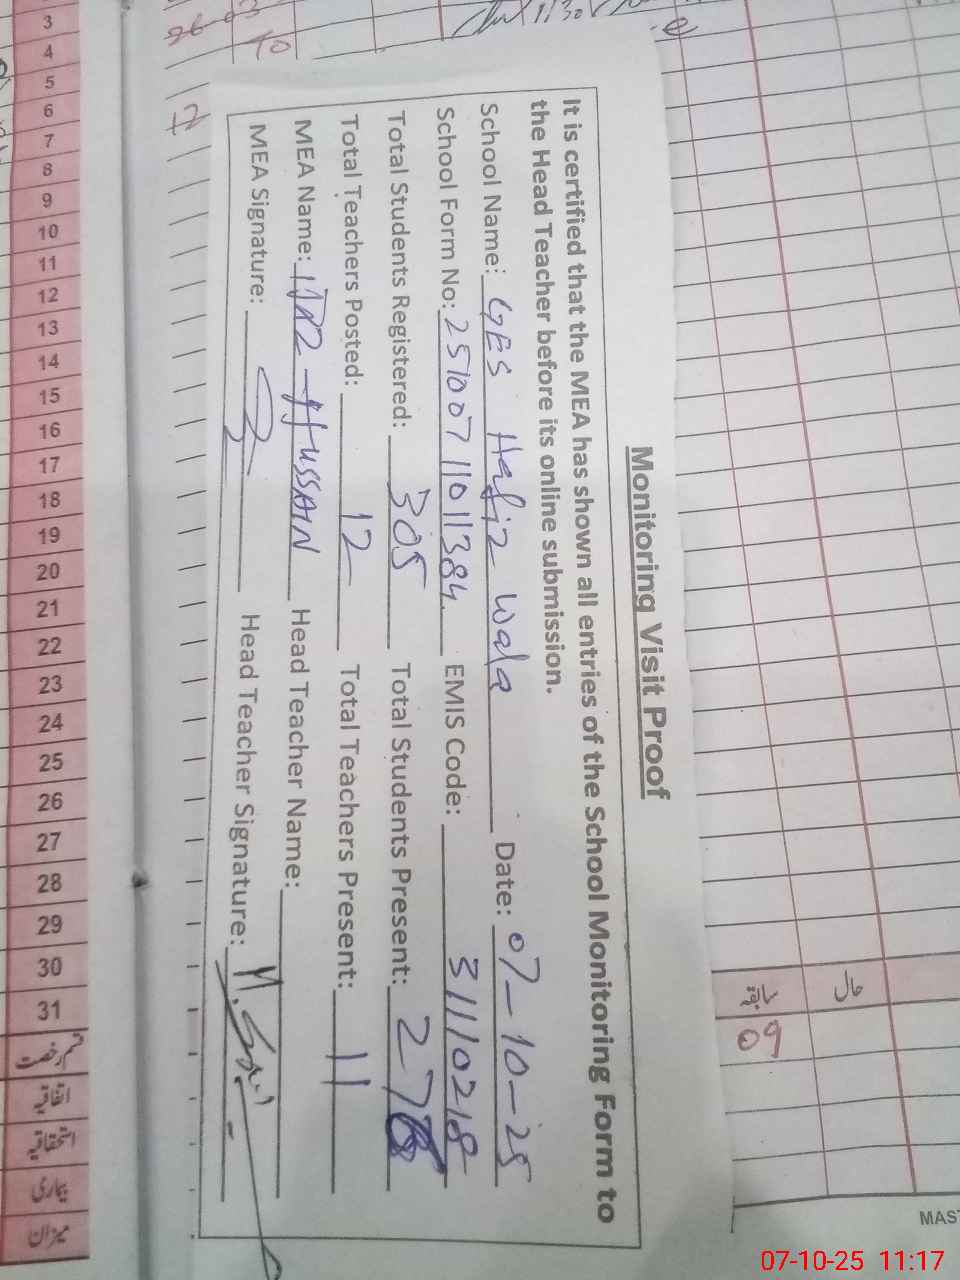 Monitoring Visit Proof
It is certified that the MEA has shown all entries of the School Monitoring Form to
the Head Teacher before its online submission.
School Name: GES Hafiz Wala Date: 07-10-25
School Form No: 2510071101384 EMIS Code: 31110218
Total Students Registered: 305 Total Students Present: 278
Total Teachers Posted: 12 Total Teachers Present: 11
MEA Name: Hussain Head Teacher Name:
MEA Signature: Head Teacher Signature:
3
4
5
6
7
8
9
10
11
12
13
14
15
16
17
18
19
20
21
22
23
24
25
26
27
28
29
30
31
قسم رخصت
اتفاقیہ
استحقاقیہ
بیماری
میزان
حال
سابقہ
09
MAST
07-10-25 11:17